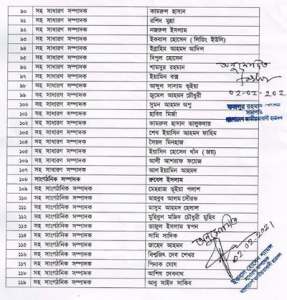 ৯০ সহ সাধারণ সম্পাদক কামরুল হাসান
৯১ সহ সাধারণ সম্পাদক রশিদ মুন্না
৯২ সহ সাধারণ সম্পাদক নজরুল ইসলাম
৯৩ সহ সাধারণ সম্পাদক ইকবাল হোসেন
৯৪ সহ সাধারণ সম্পাদক ইব্রাহিম আহমদ আদিল
৯৫ সহ সাধারণ সম্পাদক বিপুল হোসেন
৯৬ সহ সাধারণ সম্পাদক শামসুর রহমান
৯৭ সহ সাধারণ সম্পাদক ইয়ামিন বক্স
৯৮ সহ সাধারণ সম্পাদক আব্দুল সালাম ভূইয়া
৯৯ সহ সাধারণ সম্পাদক জুমেল আহমদ চৌধুরী
১০০ সহ সাধারণ সম্পাদক সুমন আহমদ অপু
১০১ সহ সাধারণ সম্পাদক হাবিব মির্জা
১০২ সহ সাধারণ সম্পাদক কামরুল হাসান তালুকদার
১০৩ সহ সাধারণ সম্পাদক শেখ ইয়াসিন আহমদ ফাহিম
১০৪ সহ সাধারণ সম্পাদক সৈয়দ মিনহাজ
১০৫ সহ সাধারণ সম্পাদক ইয়াসিন হোসেন খাঁন (জয়)
১০৬ সহ সাধারণ সম্পাদক আলী আশরাফ ফয়েজ
১০৭ সহ সাধারণ সম্পাদক আল ইয়ামিন আহমদ
১০৮ সাংগঠনিক সম্পাদক রুবেল ইসলাম
১০৯ সহ সাংগঠনিক সম্পাদক মেহরাজ ভূইয়া পলাশ
১১০ সহ সাংগঠনিক সম্পাদক মাহবুব আলম সৌরভ
১১১ সহ সাংগঠনিক সম্পাদক মাসুম আহমদ হেলাল
১১২ সহ সাংগঠনিক সম্পাদক মুহিবুল মজিদ চৌধুরী মুহিব
১১৩ সহ সাংগঠনিক সম্পাদক তাজুল ইসলাম স্বপন
১১৪ সহ সাংগঠনিক সম্পাদক সামি সাদিক
১১৫ সহ সাংগঠনিক সম্পাদক জাহেদ আহমদ
১১৬ সহ সাংগঠনিক সম্পাদক বিশ্বজিৎ দেব শেখর
১১৭ সহ সাংগঠনিক সম্পাদক পিনাক ঘোষ
১১৮ সহ সাংগঠনিক সম্পাদক আশিষ দেবনাথ
১১৯ সহ সাংগঠনিক সম্পাদক আবু সাইন সাকিব